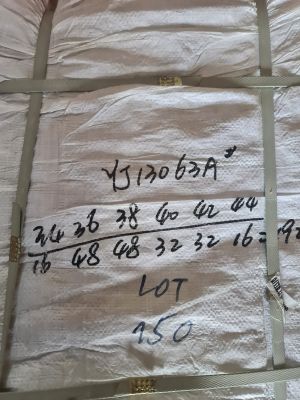 YJ13063A#
34 36 38 40 42 44
16 48 48 32 32 16 = 192
LOT
150